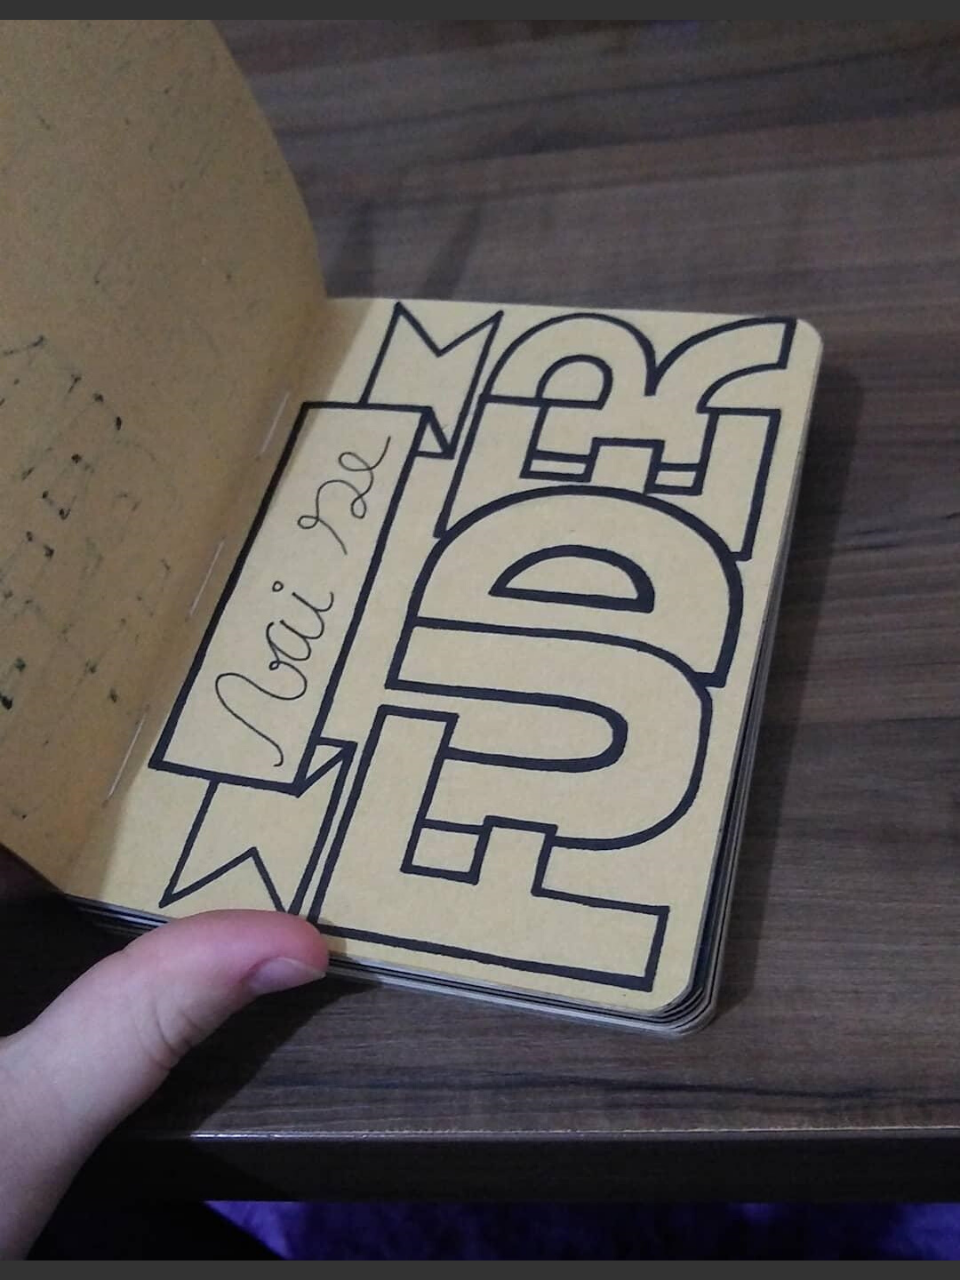 Vai se
FUDER